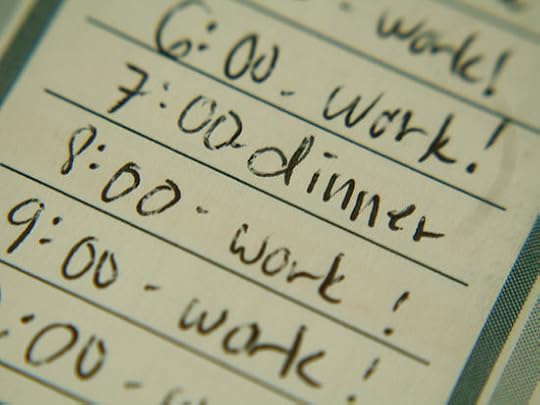 - work!
6:00 - work!
7:00 - dinner
8:00 - work!
9:00 - work!
:00 - w